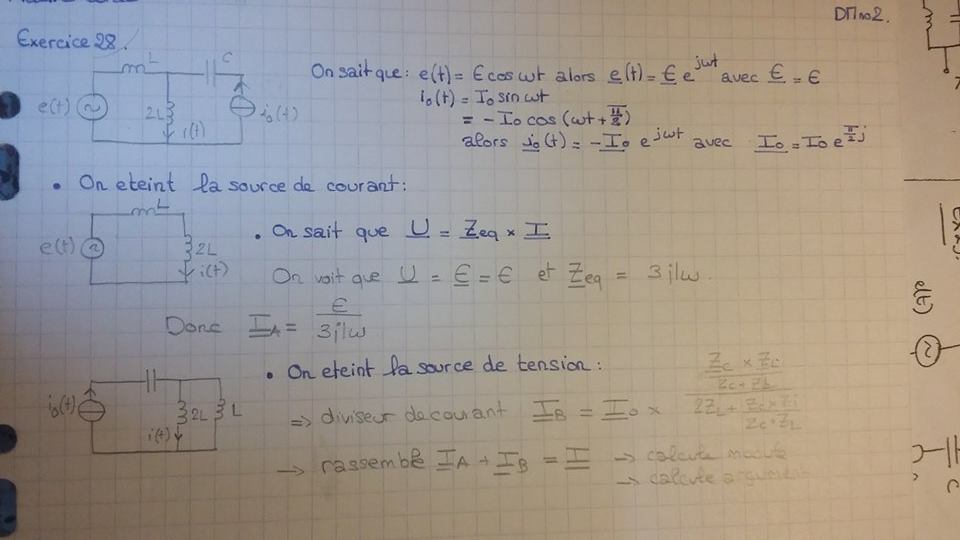 DM no2.
Exercice 28.
L
C
e(t)
2L
i(t)
i₀(t)
On sait que: e(t) = E cos wt alors e̲(t) = E̲ e^{jwt} avec E̲ = E
i₀(t) = I₀ sin wt
= - I₀ cos (wt + π/2)
alors i̲₀(t) = - I̲₀ e^{jwt} avec I̲₀ = I₀ e^{π/2 j}
• On eteint la source de courant:
L
e(t)
2L
i(t)
• On sait que U̲ = Z̲eq × I̲
On voit que U̲ = E̲ = E et Z̲eq = 3jlw.
Donc I̲A = E / 3jlw
• On eteint la source de tension:
i₀(t)
2L
L
i(t)
⇒ diviseur de courant I̲B = I̲₀ × (Zc × ZL / Zc + ZL) / (2ZL + Zc × ZL / Zc + ZL)
→ rassemblé I̲A + I̲B = I̲ → calcule module
→ calcule argument
e(t)
C